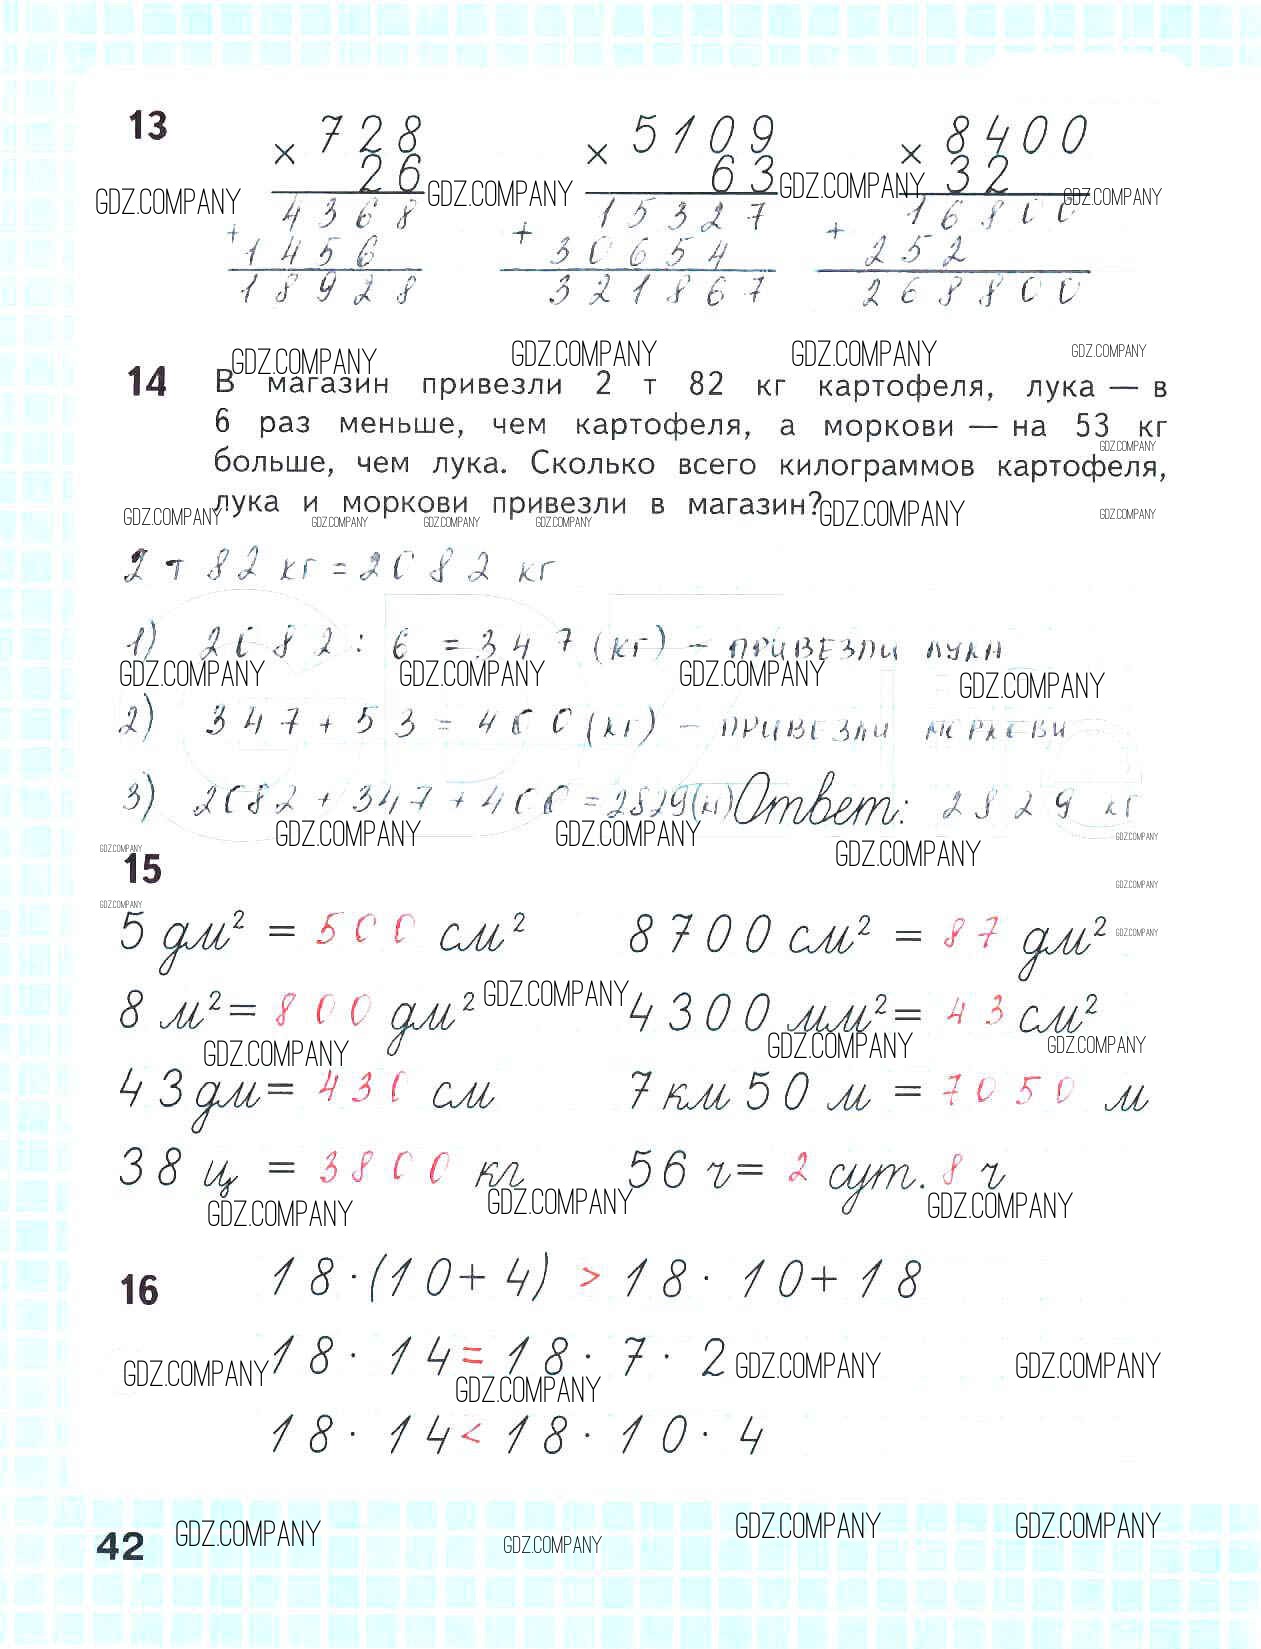 13
× 728 × 5109 × 8400
26 63 32
GDZ.COMPANY GDZ.COMPANY GDZ.COMPANY GDZ.COMPANY
4368 15327 16800
+ 1456 + 30654 + 252
18928 321867 268800
GDZ.COMPANY GDZ.COMPANY GDZ.COMPANY GDZ.COMPANY
14 В магазин привезли 2 т 82 кг картофеля, лука — в
6 раз меньше, чем картофеля, а моркови — на 53 кг
GDZ.COMPANY
больше, чем лука. Сколько всего килограммов картофеля,
лука и моркови привезли в магазин?
GDZ.COMPANY GDZ.COMPANY GDZ.COMPANY GDZ.COMPANY GDZ.COMPANY GDZ.COMPANY
2 т 82 кг = 2082 кг
1) 2082 : 6 = 347 (кг) – привезли лука
GDZ.COMPANY GDZ.COMPANY GDZ.COMPANY GDZ.COMPANY
2) 347 + 53 = 400 (кг) – привезли моркови
3) 2082 + 347 + 400 = 2829 (кг) Ответ: 2829 кг
GDZ.COMPANY GDZ.COMPANY GDZ.COMPANY GDZ.COMPANY
GDZ.COMPANY
15
GDZ.COMPANY
GDZ.COMPANY
5 дм² = 500 см² 8700 см² = 87 дм² GDZ.COMPANY
8 м² = 800 дм² GDZ.COMPANY 4300 мм² = 43 см²
GDZ.COMPANY GDZ.COMPANY GDZ.COMPANY
43 дм = 430 см 7 км 50 м = 7050 м
38 ц = 3800 кг 56 ч = 2 сут. 8 ч
GDZ.COMPANY GDZ.COMPANY GDZ.COMPANY
16 18 · (10 + 4) > 18 · 10 + 18
18 · 14 = 18 · 7 · 2
GDZ.COMPANY GDZ.COMPANY GDZ.COMPANY GDZ.COMPANY
18 · 14 < 18 · 10 · 4
42 GDZ.COMPANY GDZ.COMPANY GDZ.COMPANY GDZ.COMPANY